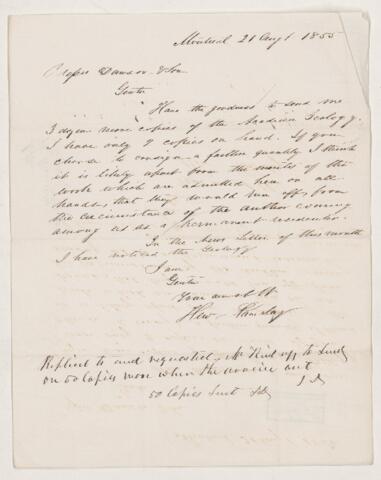 Montreal 21 Augt 1855
Messrs Dawson & Son
Gents
Have the goodness to send me
3 dozen more copies of the Acadian Geology.
I have only 9 copies on hand. If you
choose to consign a further quantity I think
it is likely apart from the merits of the
work which are admitted here on all
hands, that they would run off, from
the circumstance of the author coming
among us as a permanent resident.
In the News Letter of this month
I have noticed the Geology
I am
Gents
Your
Hew Ramsay
Replied to and requested Mr to Send
on 50 Copies more when the invoice out
50 Copies Sent